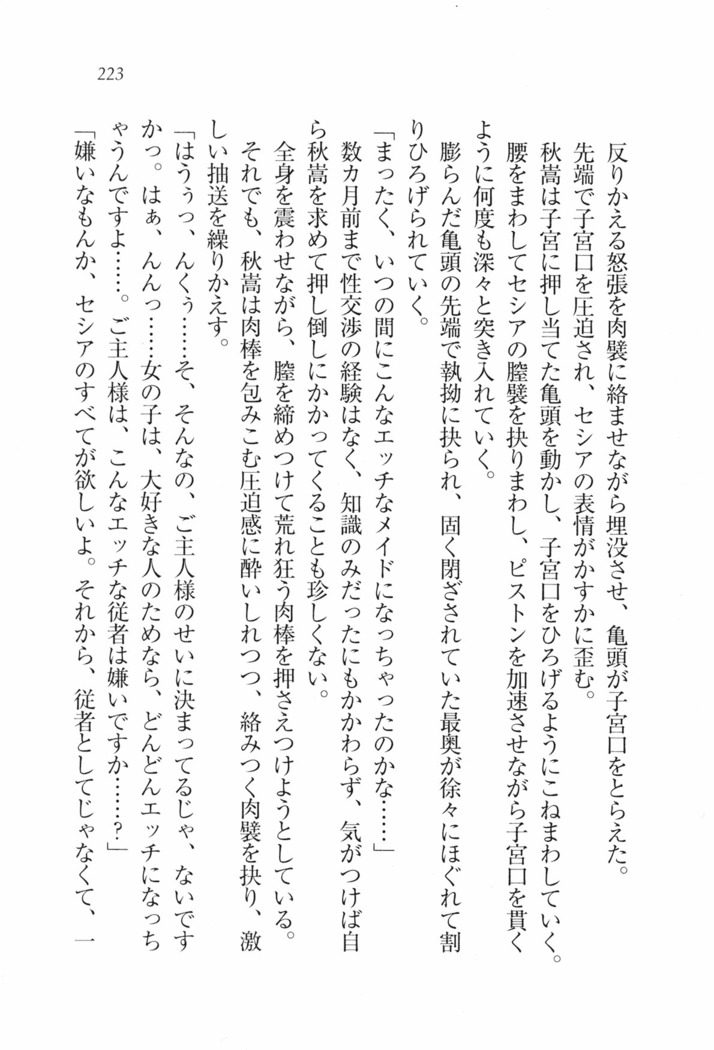 223
反りかえる怒張を肉襞に絡ませながら埋没させ、亀頭が子宮口をとらえた。
先端で子宮口を圧迫され、セシアの表情がかすかに歪む。
秋嵩は子宮に押し当てた亀頭を動かし、子宮口をひろげるようにこねまわしていく。
腰をまわしてセシアの膣襞を抉りまわし、ピストンを加速させながら子宮口を貫く
ように何度も深々と突き入れていく。
膨らんだ亀頭の先端で執拗に抉られ、固く閉ざされていた最奥が徐々にほぐれて割
りひろげられていく。
「まったく、いつの間にこんなエッチなメイドになっちゃったのかな……」
数カ月前まで性交渉の経験はなく、知識のみだったにもかかわらず、気がつけば自
ら秋嵩を求めて押し倒しにかかってくることも珍しくない。
全身を震わせながら、膣を締めつけて荒れ狂う肉棒を押さえつけようとしている。
それでも、秋嵩は肉棒を包みこむ圧迫感に酔いしれつつ、絡みつく肉襞を抉り、激
しい抽送を繰りかえす。
「はうぅっ、んくぅ……そ、そんなの、ご主人様のせいに決まってるじゃ、ないです
かっ。はぁ、んんっ……女の子は、大好きな人のためなら、どんどんエッチになっち
ゃうんですよ……。ご主人様は、こんなエッチな従者は嫌いですか……?」
「嫌いなもんか、セシアのすべてが欲しいよ。それから、従者としてじゃなくて、一